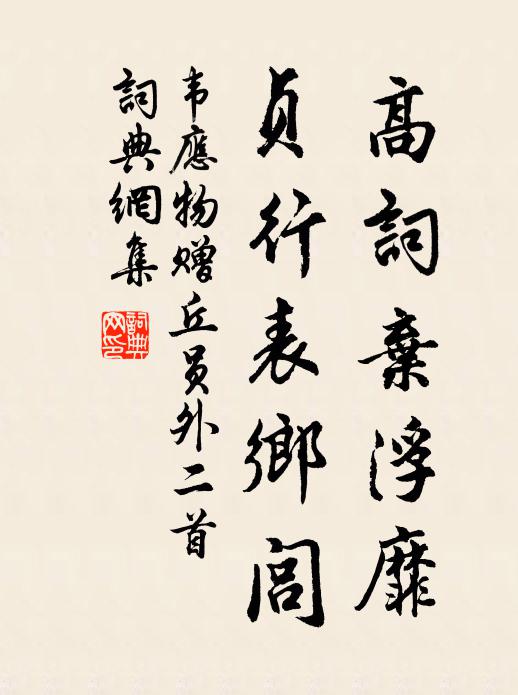 高詞棄浮靡
貞行表鄉閭
韦應物赠丘员外二首
詞典網集
詞典网印